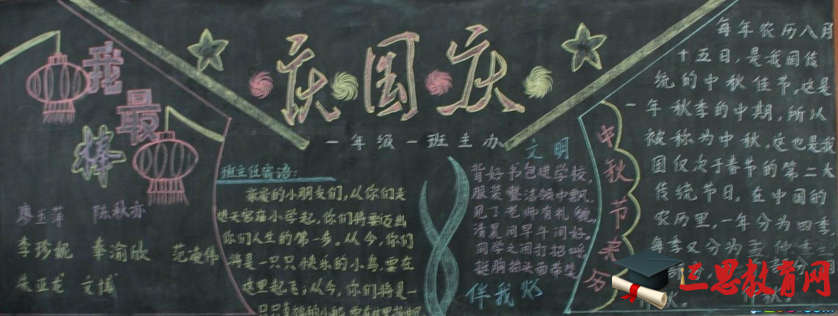 我最棒
廖玉萍 陈秋亦
李珍妮 秦渝欣 范凌伟
朱亚龙 文博
庆国庆
一年级一班主办
班主任寄语:
亲爱的小朋友们,从你们走
进天宫庙小学起,你们将要迈出
你们人生的第一步。从今,你们
将是一只只快乐的小鸟,要在
这里起飞;从今,你们将是一
文明
背好书包进学校
服装整洁领巾飘
见了老师有礼貌
清晨问早午问好
同学之间打招呼
挺胸抬头面带笑
伴我行
中秋节来历
每年农历八月
十五日,是我国传
统的中秋佳节。这是
一年秋季的中期,所以
被称为中秋。这也是我
国仅次于春节的第二大
传统节日。在中国的
农历里,一年分为四季
每季又分为孟仲季三
三思教育网